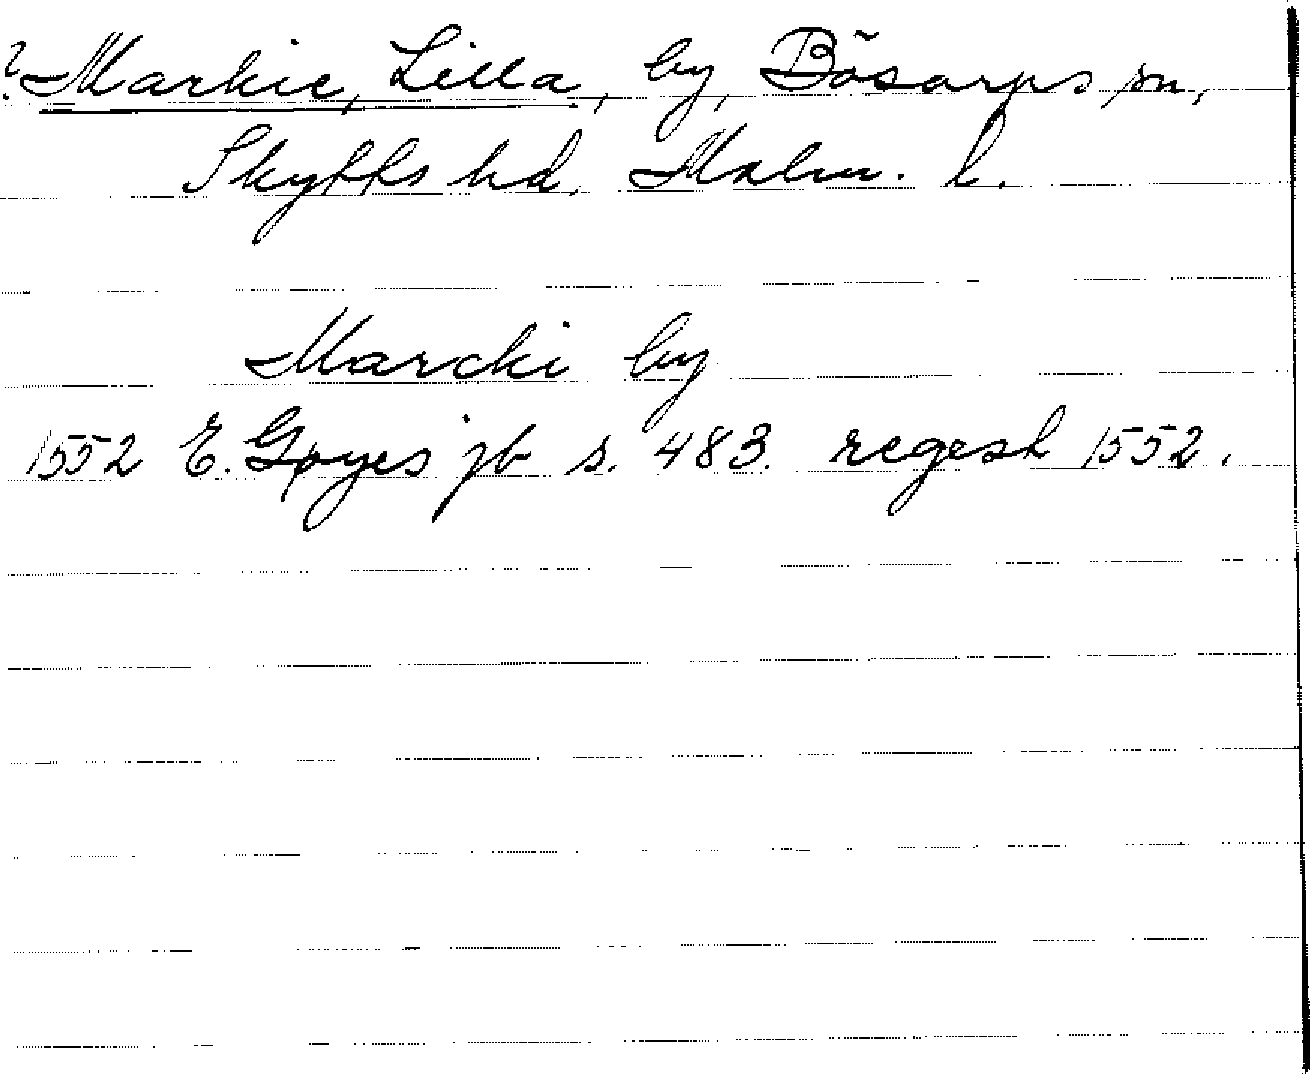 ? Markie, Lilla, by, Bösarps sn,
Skytts hd. Malm. l.
Marcki by
1552 E. Gøyes jb s. 483. regest 1552.